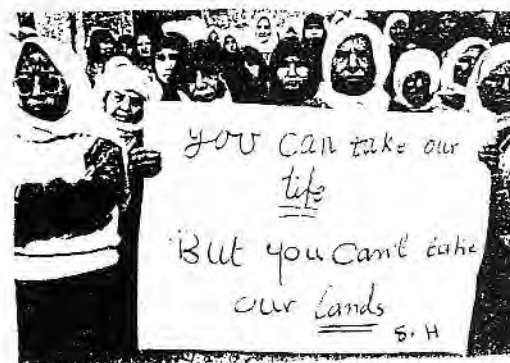 you can take our
life
But you can't take
our lands
S. H